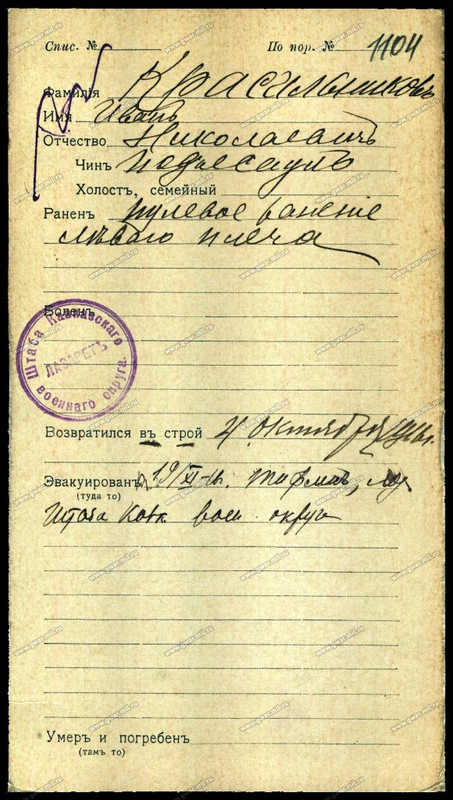 Спис. № По пор. № 1104
Фамилія Красильниковъ
Имя Иванъ
Отчество Николаевичъ
Чинъ подъесаулъ
Холостъ, семейный
Раненъ пулевое ранение
лѣваго плеча
Боленъ
Штаба Кавказскаго военнаго округа.
ЛАЗАРЕТЪ
Возвратился въ строй 4 октября 1916г.
Эвакуированъ 19/XI-16. Тифлисъ,
(туда то)
Штаба Кавк воен округа
Умеръ и погребенъ
(тамъ то)
www.gwar.mil.ru